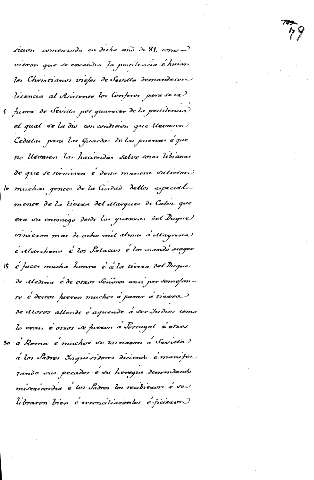 79
sieron comenzada en dicho año de 81. como
vieron que se encendía la pestilencia é huian
los Christianos viejos de Sevilla demandaron
licencia al Asistente los Confesos para se ir
5 fuera de Sevilla por guarecer de la pestilencia
el qual se la dio con condicion que llevasen
Cedulas para las Guardas de las puertas é que
no llevasen las haciendas salvo cosas livianas
de que se sirviesen é desta manera salieron
10 muchas gentes de la Ciudad dellos especial-
mente de la tierra del Marques de Cadiz que
era su enemigo desde las guerras del Duque
vinieron mas de ocho mil almas á Mayrena
é Marchena é los Palacios é los mandó acoger
15 é facer mucha honra é á la tierra del Duque
de Medina é de otros Señores assi por semejan-
te é destos fueron muchos á parar á tierra
de Moros allende é aquende á ser Judios como
lo eran é otros se fueron á Portugal é otros
20 á Roma é muchos se tornaron á Sevilla
á los Padres Inquisidores diciendo é manifes-
tando sus pecados é su heregia demandando
misericordia é los Padres los recibieron é se
libraron bien é reconciliaronlos é ficieron